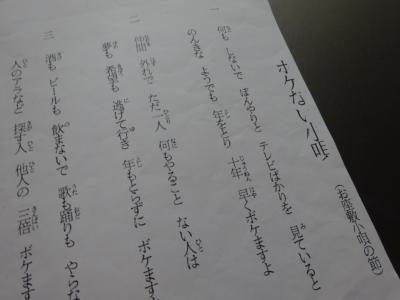 ボケない小唄
(お座敷小唄の節)
一 何も しないで ぼんやりと テレビばかりを 見ていると
のんきな ようでも 年をとり 十年 早く ボケますよ
二 仲間 外れで ただ一人 何もやること ない人は
夢も 希望も 逃げて行き 年もとらずに ボケます
三 酒も ビールも 飲まないで 歌も踊りも やらな
人のアラなど 探す人 他人の 三倍 ボケます